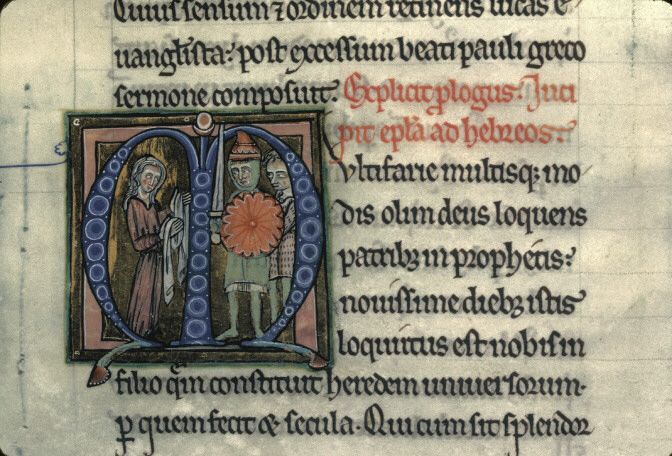 Cuius sensum ⁊ ordinem retinens lucas e
uangl̅ista: post excessium beati pauli greco
sermone composuit. Explicit ꝓlogus. Inci
pit ep̅l̅a ad hebreos:
Multifarie multisq; mo
dis olim deus loquens
patrib; in prophetis:
nouissime dieb; istis
loquutus est nobis in
filio q̅m constituit heredem uniuersorum.
ꝑ quem fecit & secula. Qui cum sit splendor